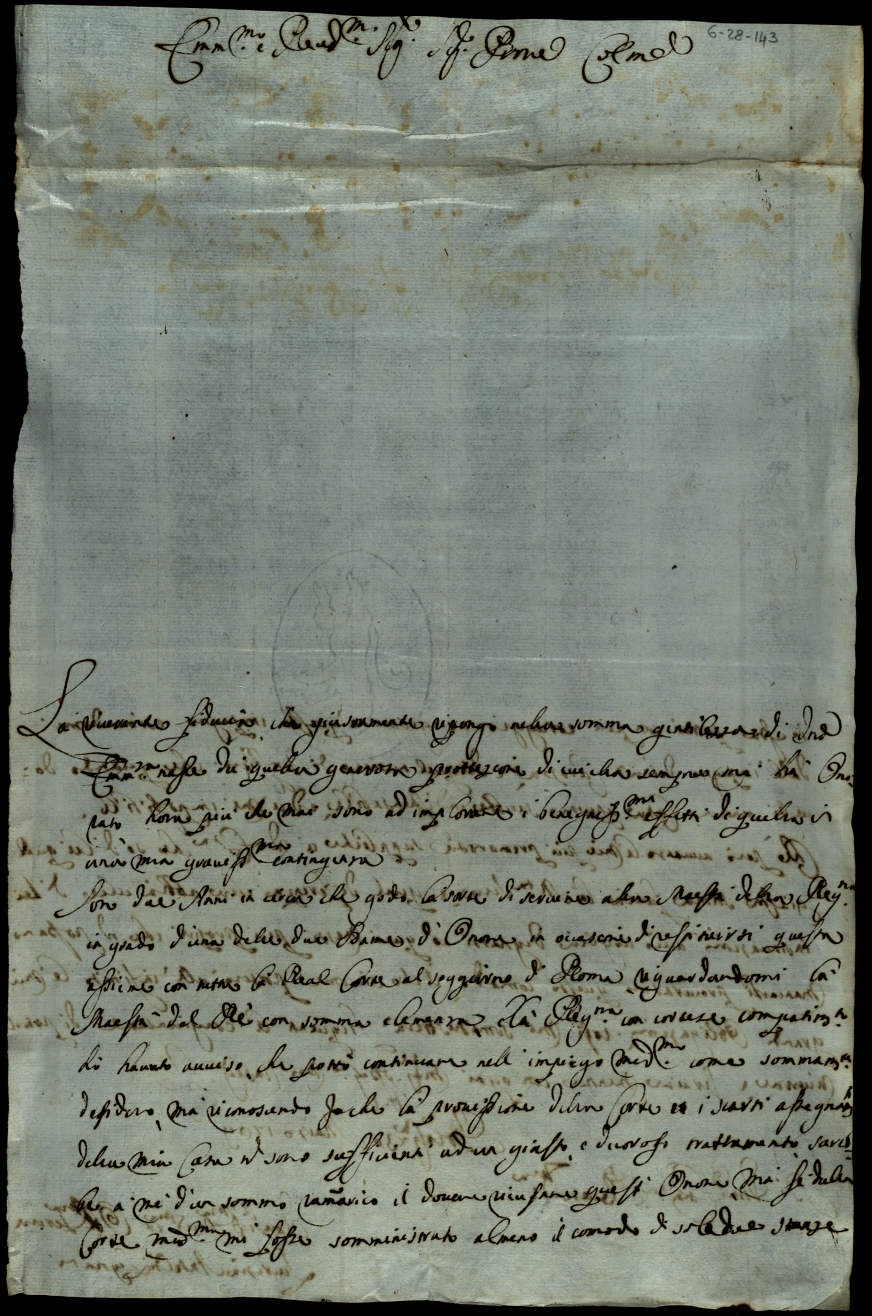 6-28-143
Emm.mo e Reud.mo Sig.r Sig.r Prone Colmo
La riuerente fiducia, che giustamente ripongo nella somma gentilezza di Vra
Emm.za nasce da quella generosa protezione di cui ella sempre mai hà Ono:
rato hora più che mai sono ad implorare i benegniss.mi effetti di quella in
una mia grauiss.ma contingenza
Son due Anni in circa che godo la sorte di seruire alla Maestà della Reg.na
in grado d'una delle due Dame d'Onore, in occasione di restituirsi questa
assieme con tutta la Real Corte al soggiorno di Roma riguardandomi la
Maestà del Rè con somma clemenza, e la Reg.na con cortese compatim.to
hò hauuto auuiso, che potrò continuare nell' impiego med.mo come sommam.te
desidero, mà riconoscendo Io che la prouissione della Corte et i scarsi assegnam.ti
della mia Casa n sono sufficienti ad un giusto, e decoroso trattamento, sareb:
be a mè d'un sommo ramarico il douere ricusare questi Onori, mà se dalla
Corte med.ma mi fosse somministrato almeno il comodo di sole due stanze